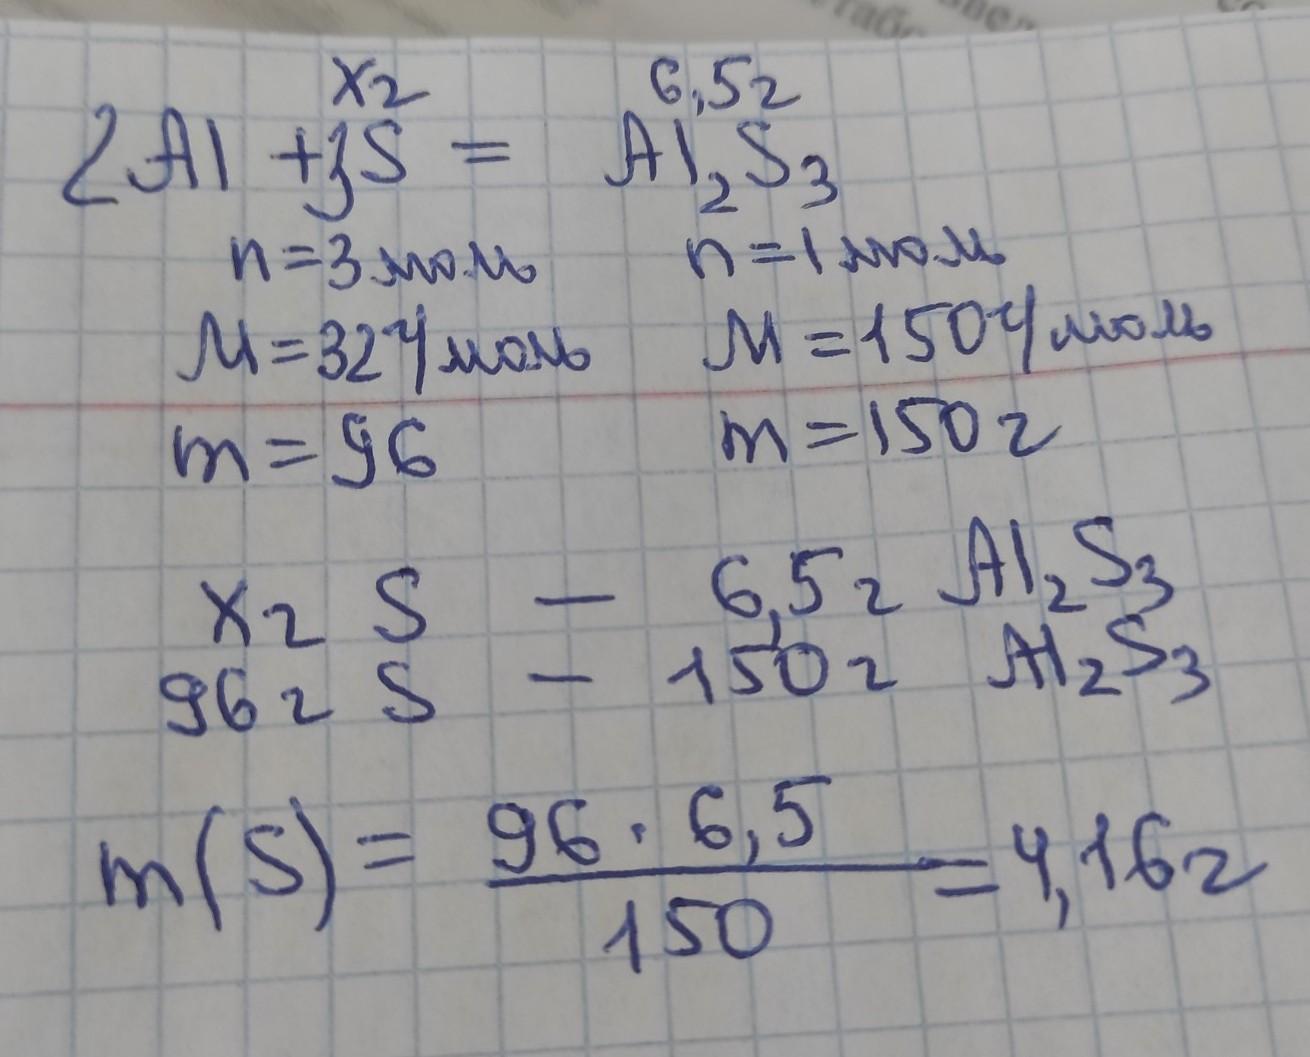 xг 6,5г
2Al + 3S = Al₂S₃
n=3моль n=1моль
M=32г/моль M=150г/моль
m=96 m=150г
xг S – 6,5г Al₂S₃
96г S – 150г Al₂S₃
m(S) = 96·6,5/150 = 4,16г